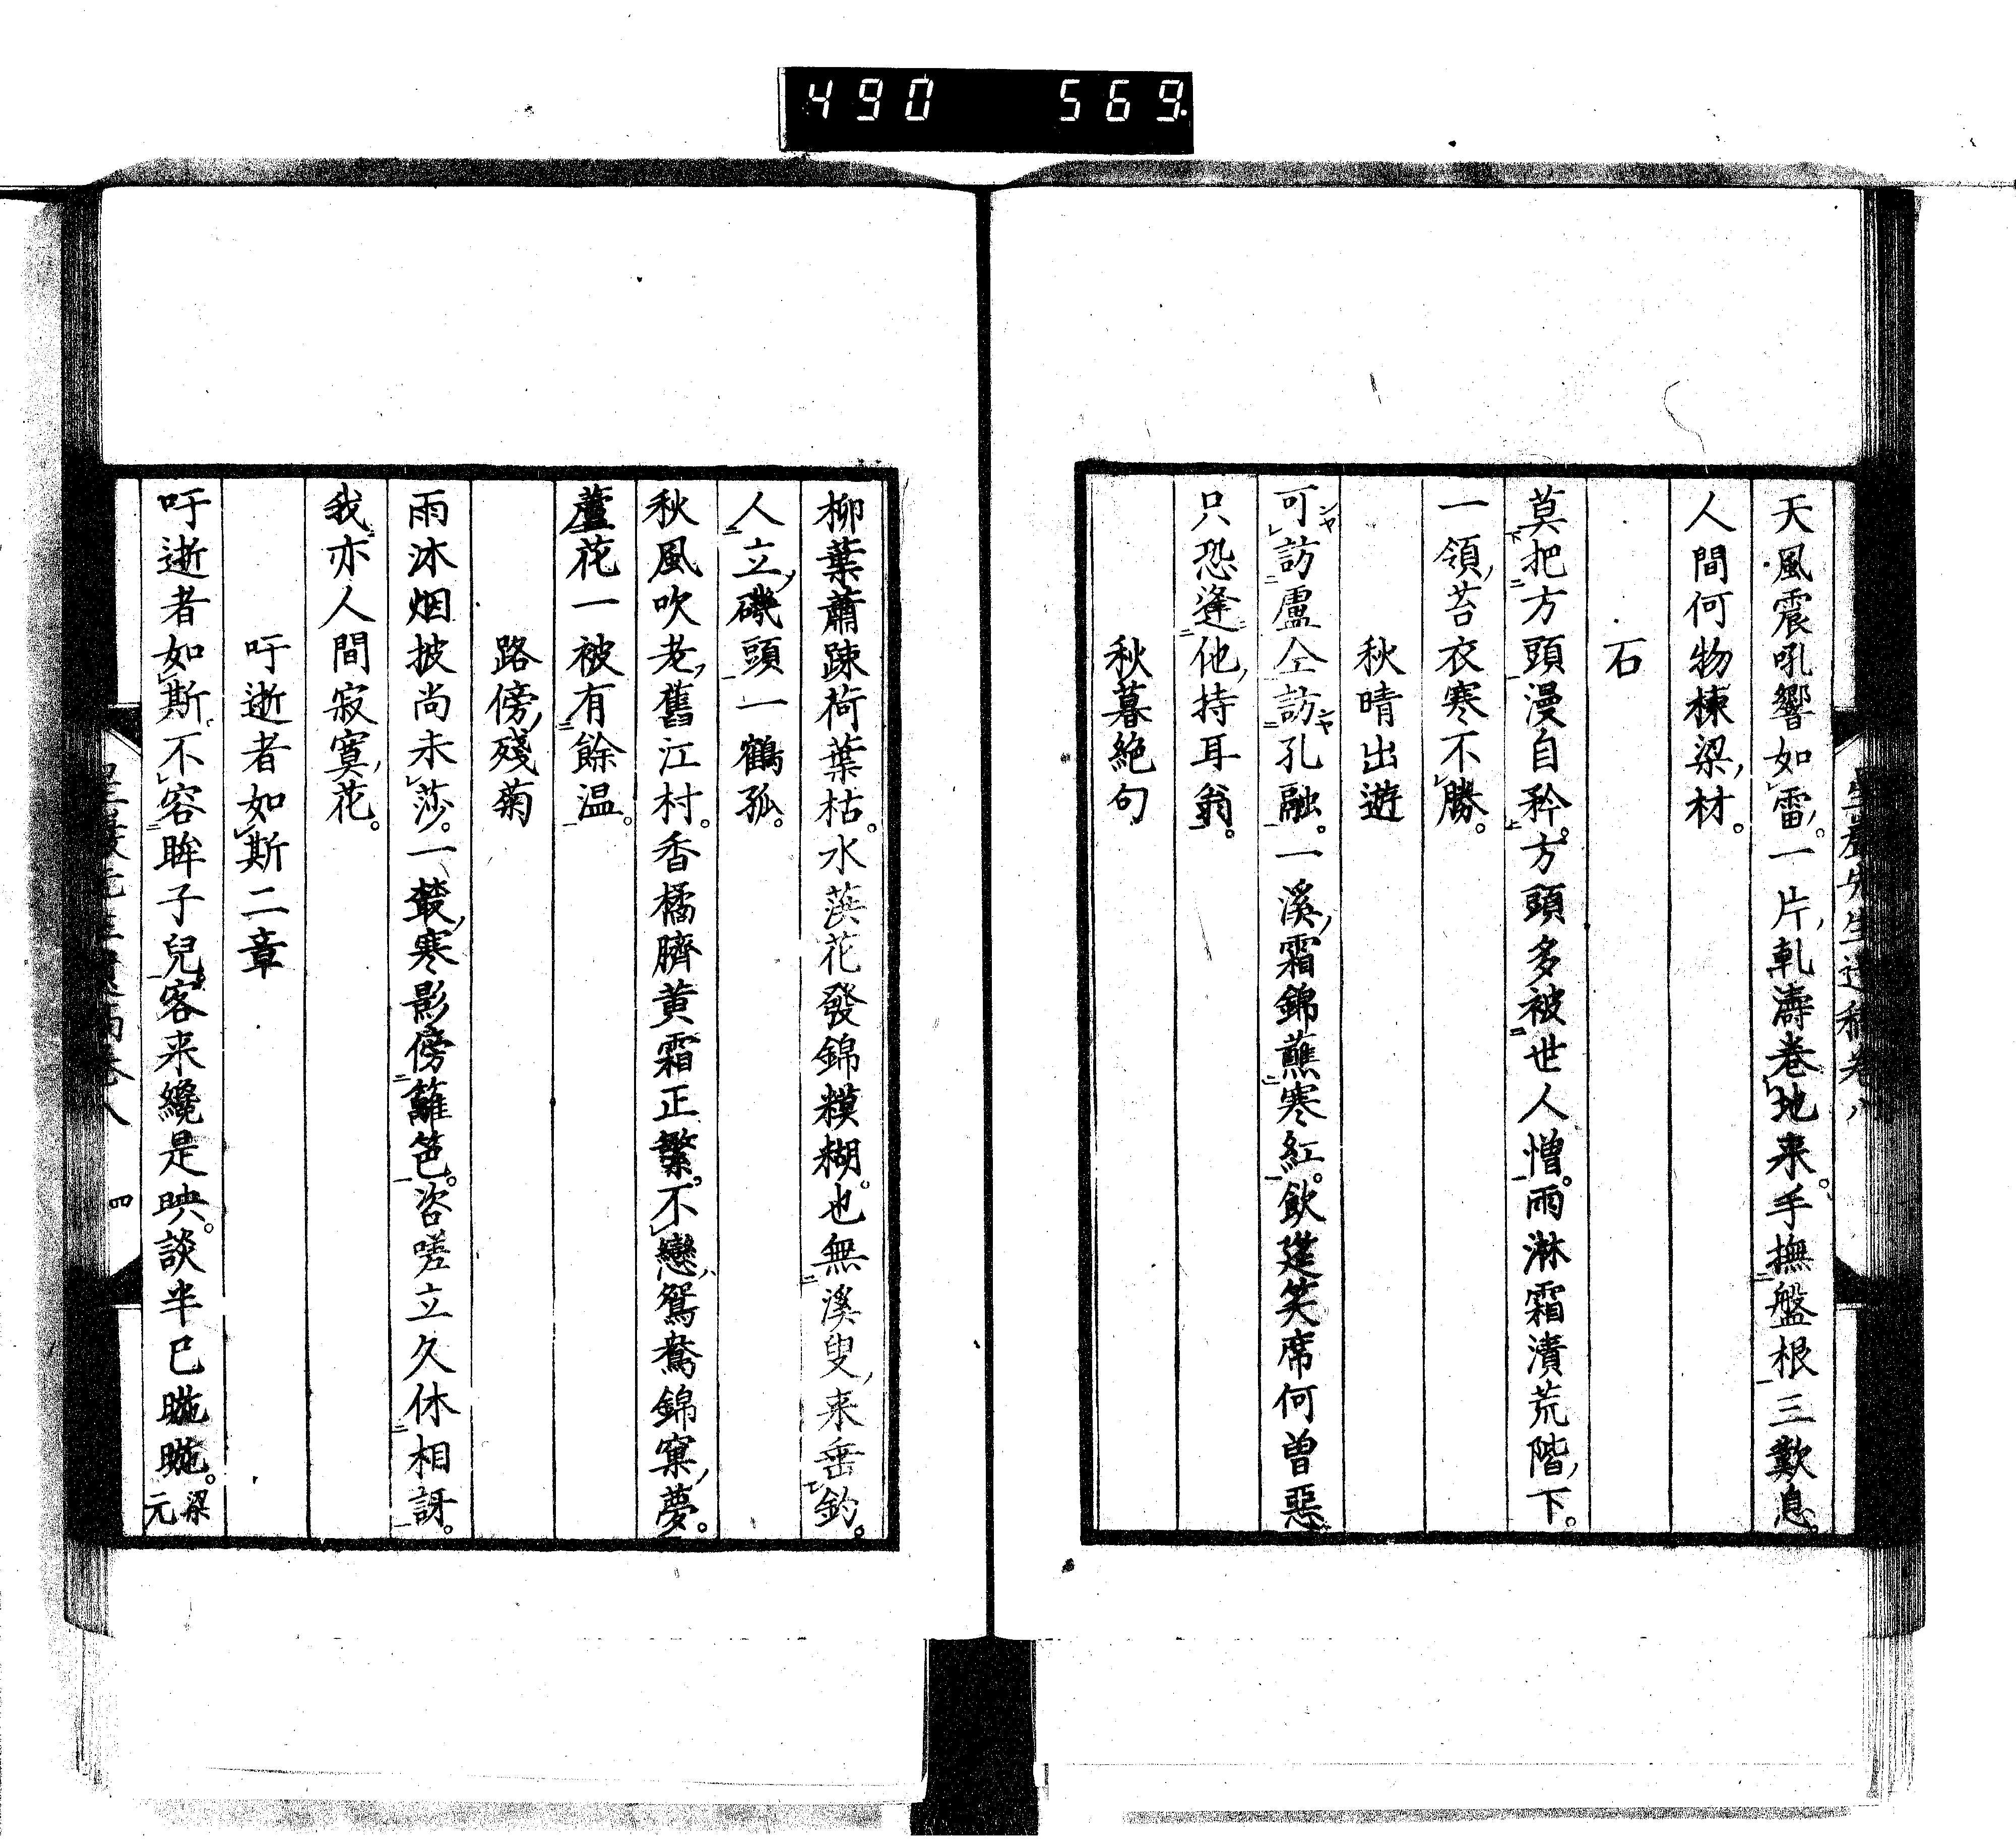 490 569.
天風震吼響如雷。一片軋濤巻地来。手撫盤根三歎息。
人間何物棟梁材。
石
莫把方頭漫自矜。方頭多被世人憎。雨淋霜漬荒階下。
一領苔衣寒不勝。
秋晴出遊
可訪盧仝訪孔融。一溪霜錦蘸寒紅。飲筵笑席何曽惡。
只恐逢他持耳翁。
秋暮絶句
柳葉蕭踈荷葉枯。水葓花發錦糢糊。也無溪叟来垂釣。
人立磯頭一鶴孤。
秋風吹老舊江村。香橘臍黄霜正繁。不戀鴛鴦錦窠夢。
蘆花一被有餘温。
路傍殘菊
雨沐烟披尚未莎。一叢寒影傍籬笆。咨嗟立久休相訝。
我亦人間寂寞花。
吁逝者如斯二章
吁逝者如斯。不容眸子兒。客来纔是映。談半已暆暆。梁
元
四